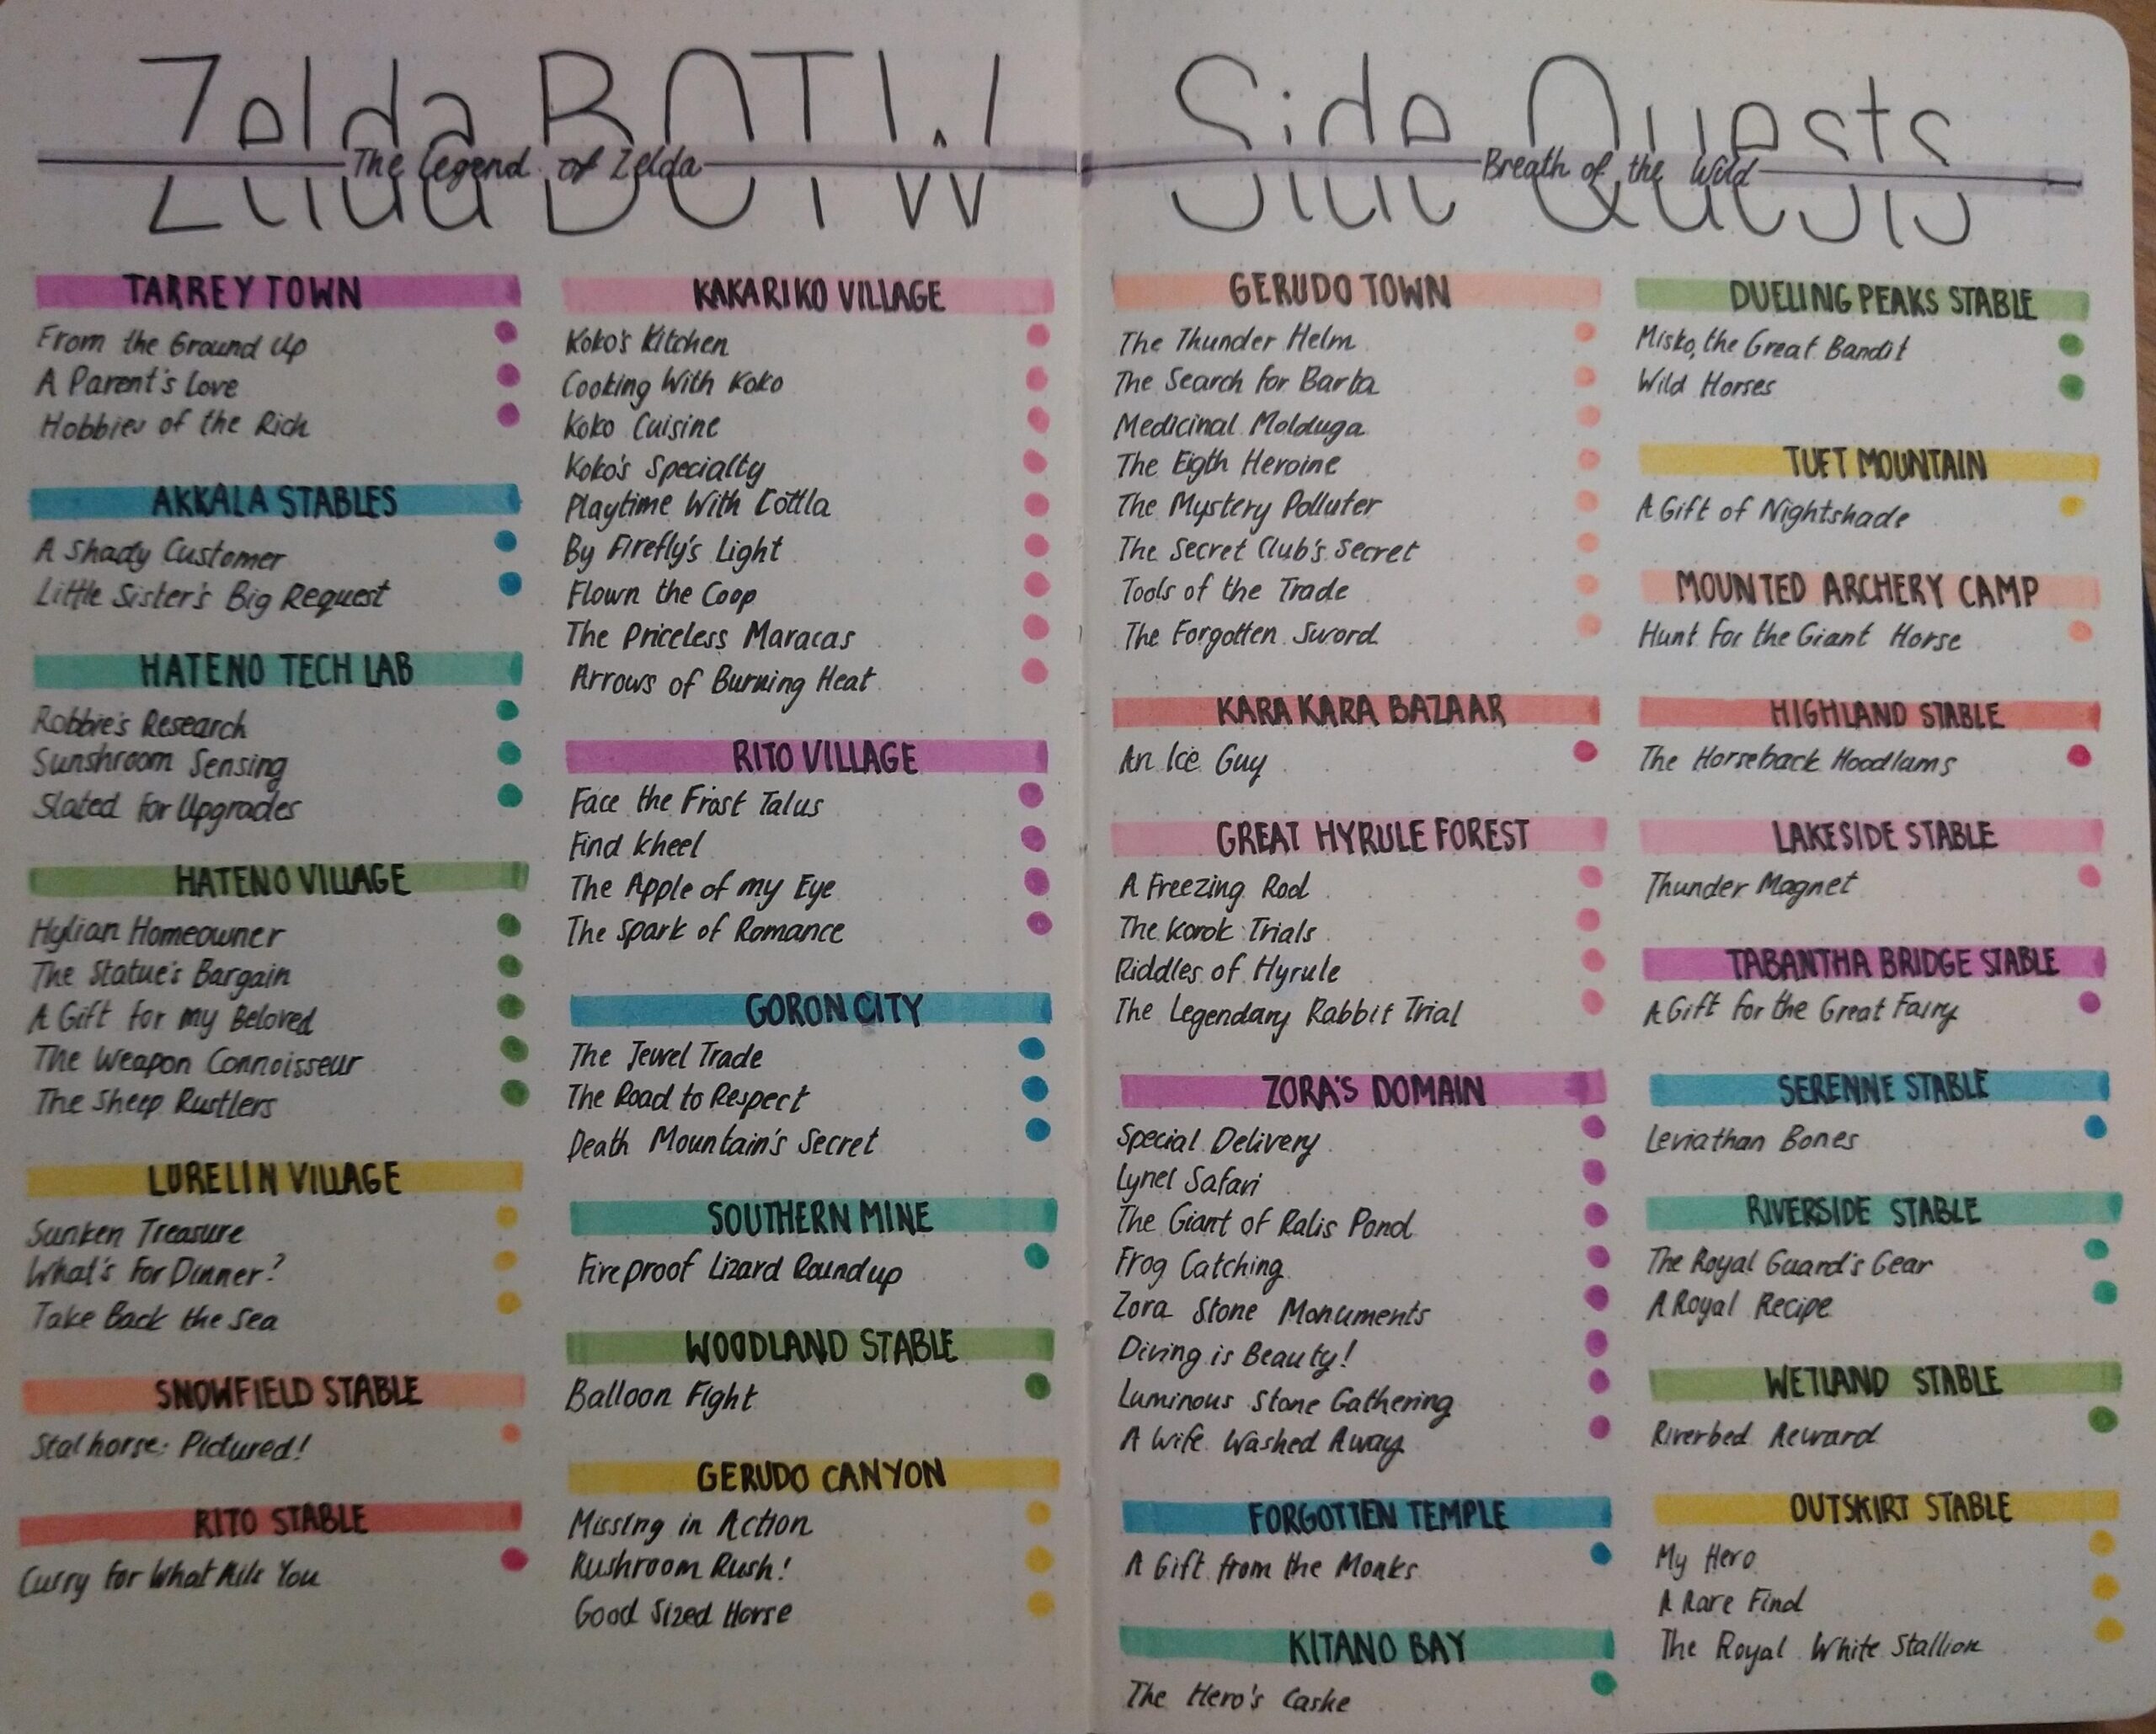 Zelda BOTW
The Legend of Zelda
TARREY TOWN
From the Ground Up
A Parent's Love
Hobbies of the Rich
AKKALA STABLES
A Shady Customer
Little Sister's Big Request
HATENO TECH LAB
Robbie's Research
Sunshroom Sensing
Slated for Upgrades
HATENO VILLAGE
Hylian Homeowner
The Statue's Bargain
A Gift for my Beloved
The Weapon Connoisseur
The Sheep Rustlers
LURELIN VILLAGE
Sunken Treasure
What's For Dinner?
Take Back the Sea
SNOWFIELD STABLE
Stalhorse: Pictured!
RITO STABLE
Curry for What Ails You
KAKARIKO VILLAGE
Koko's Kitchen
Cooking With Koko
Koko Cuisine
Koko's Specialty
Playtime With Cottla
By Firefly's Light
Flown the Coop
The Priceless Maracas
Arrows of Burning Heat
RITO VILLAGE
Face the Frost Talus
Find Kheel
The Apple of my Eye
The Spark of Romance
GORON CITY
The Jewel Trade
The Road to Respect
Death Mountain's Secret
SOUTHERN MINE
Fireproof Lizard Roundup
WOODLAND STABLE
Balloon Fight
GERUDO CANYON
Missing in Action
Rushroom Rush!
Good Sized Horse
Side Quests
Breath of the Wild
GERUDO TOWN
The Thunder Helm
The Search for Barta
Medicinal Molduga
The Eigth Heroine
The Mystery Polluter
The Secret Club's Secret
Tools of the Trade
The Forgotten Sword
KARA KARA BAZAAR
An Ice Guy
GREAT HYRULE FOREST
A Freezing Rod
The Korok Trials
Riddles of Hyrule
The Legendary Rabbit Trial
ZORA'S DOMAIN
Special Delivery
Lynel Safari
The Giant of Ralis Pond
Frog Catching
Zora Stone Monuments
Diving is Beauty!
Luminous Stone Gathering
A Wife Washed Away
FORGOTTEN TEMPLE
A Gift from the Monks
KITANO BAY
The Hero's Caske
DUELING PEAKS STABLE
Misko, the Great Bandit
Wild Horses
TUFT MOUNTAIN
A Gift of Nightshade
MOUNTED ARCHERY CAMP
Hunt for the Giant Horse
HIGHLAND STABLE
The Horseback Hoodlams
LAKESIDE STABLE
Thunder Magnet
TABANTHA BRIDGE STABLE
A Gift for the Great Fairy
SERENNE STABLE
Leviathan Bones
RIVERSIDE STABLE
The Royal Guard's Gear
A Royal Recipe
WETLAND STABLE
Riverbed Reward
OUTSKIRT STABLE
My Hero
A Rare Find
The Royal White Stallion